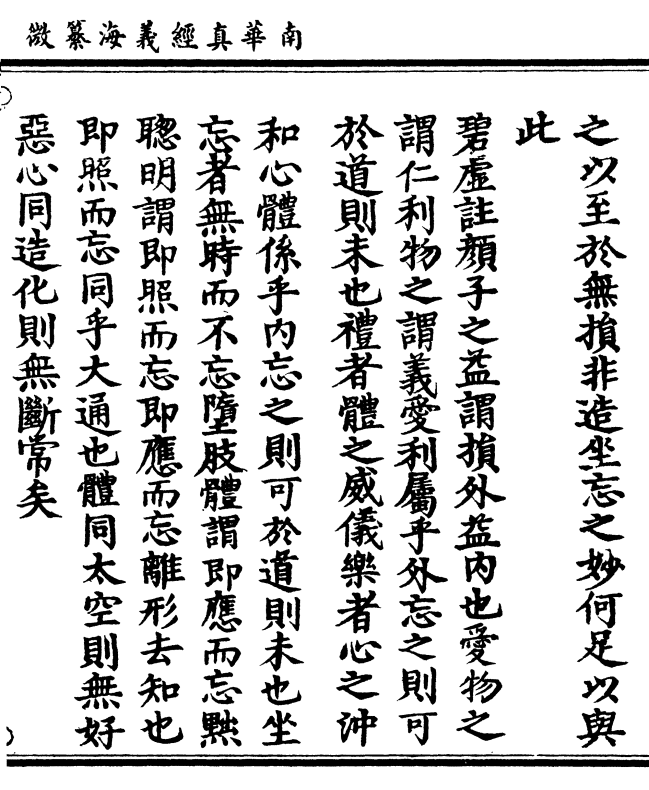 南華真經義海纂微
之以至於無損非造坐忘之妙何足以與
此
碧虛註顏子之益謂損外益內也愛物之
謂仁利物之謂義愛利屬乎外忘之則可
於道則未也禮者體之威儀樂者心之沖
和心體係乎內忘之則可於道則未也坐
忘者無時而不忘墮肢體謂即應而忘黜
聰明謂即照而忘即應而忘離形去知也
即照而忘同乎大通也體同太空則無好
惡心同造化則無斷常矣